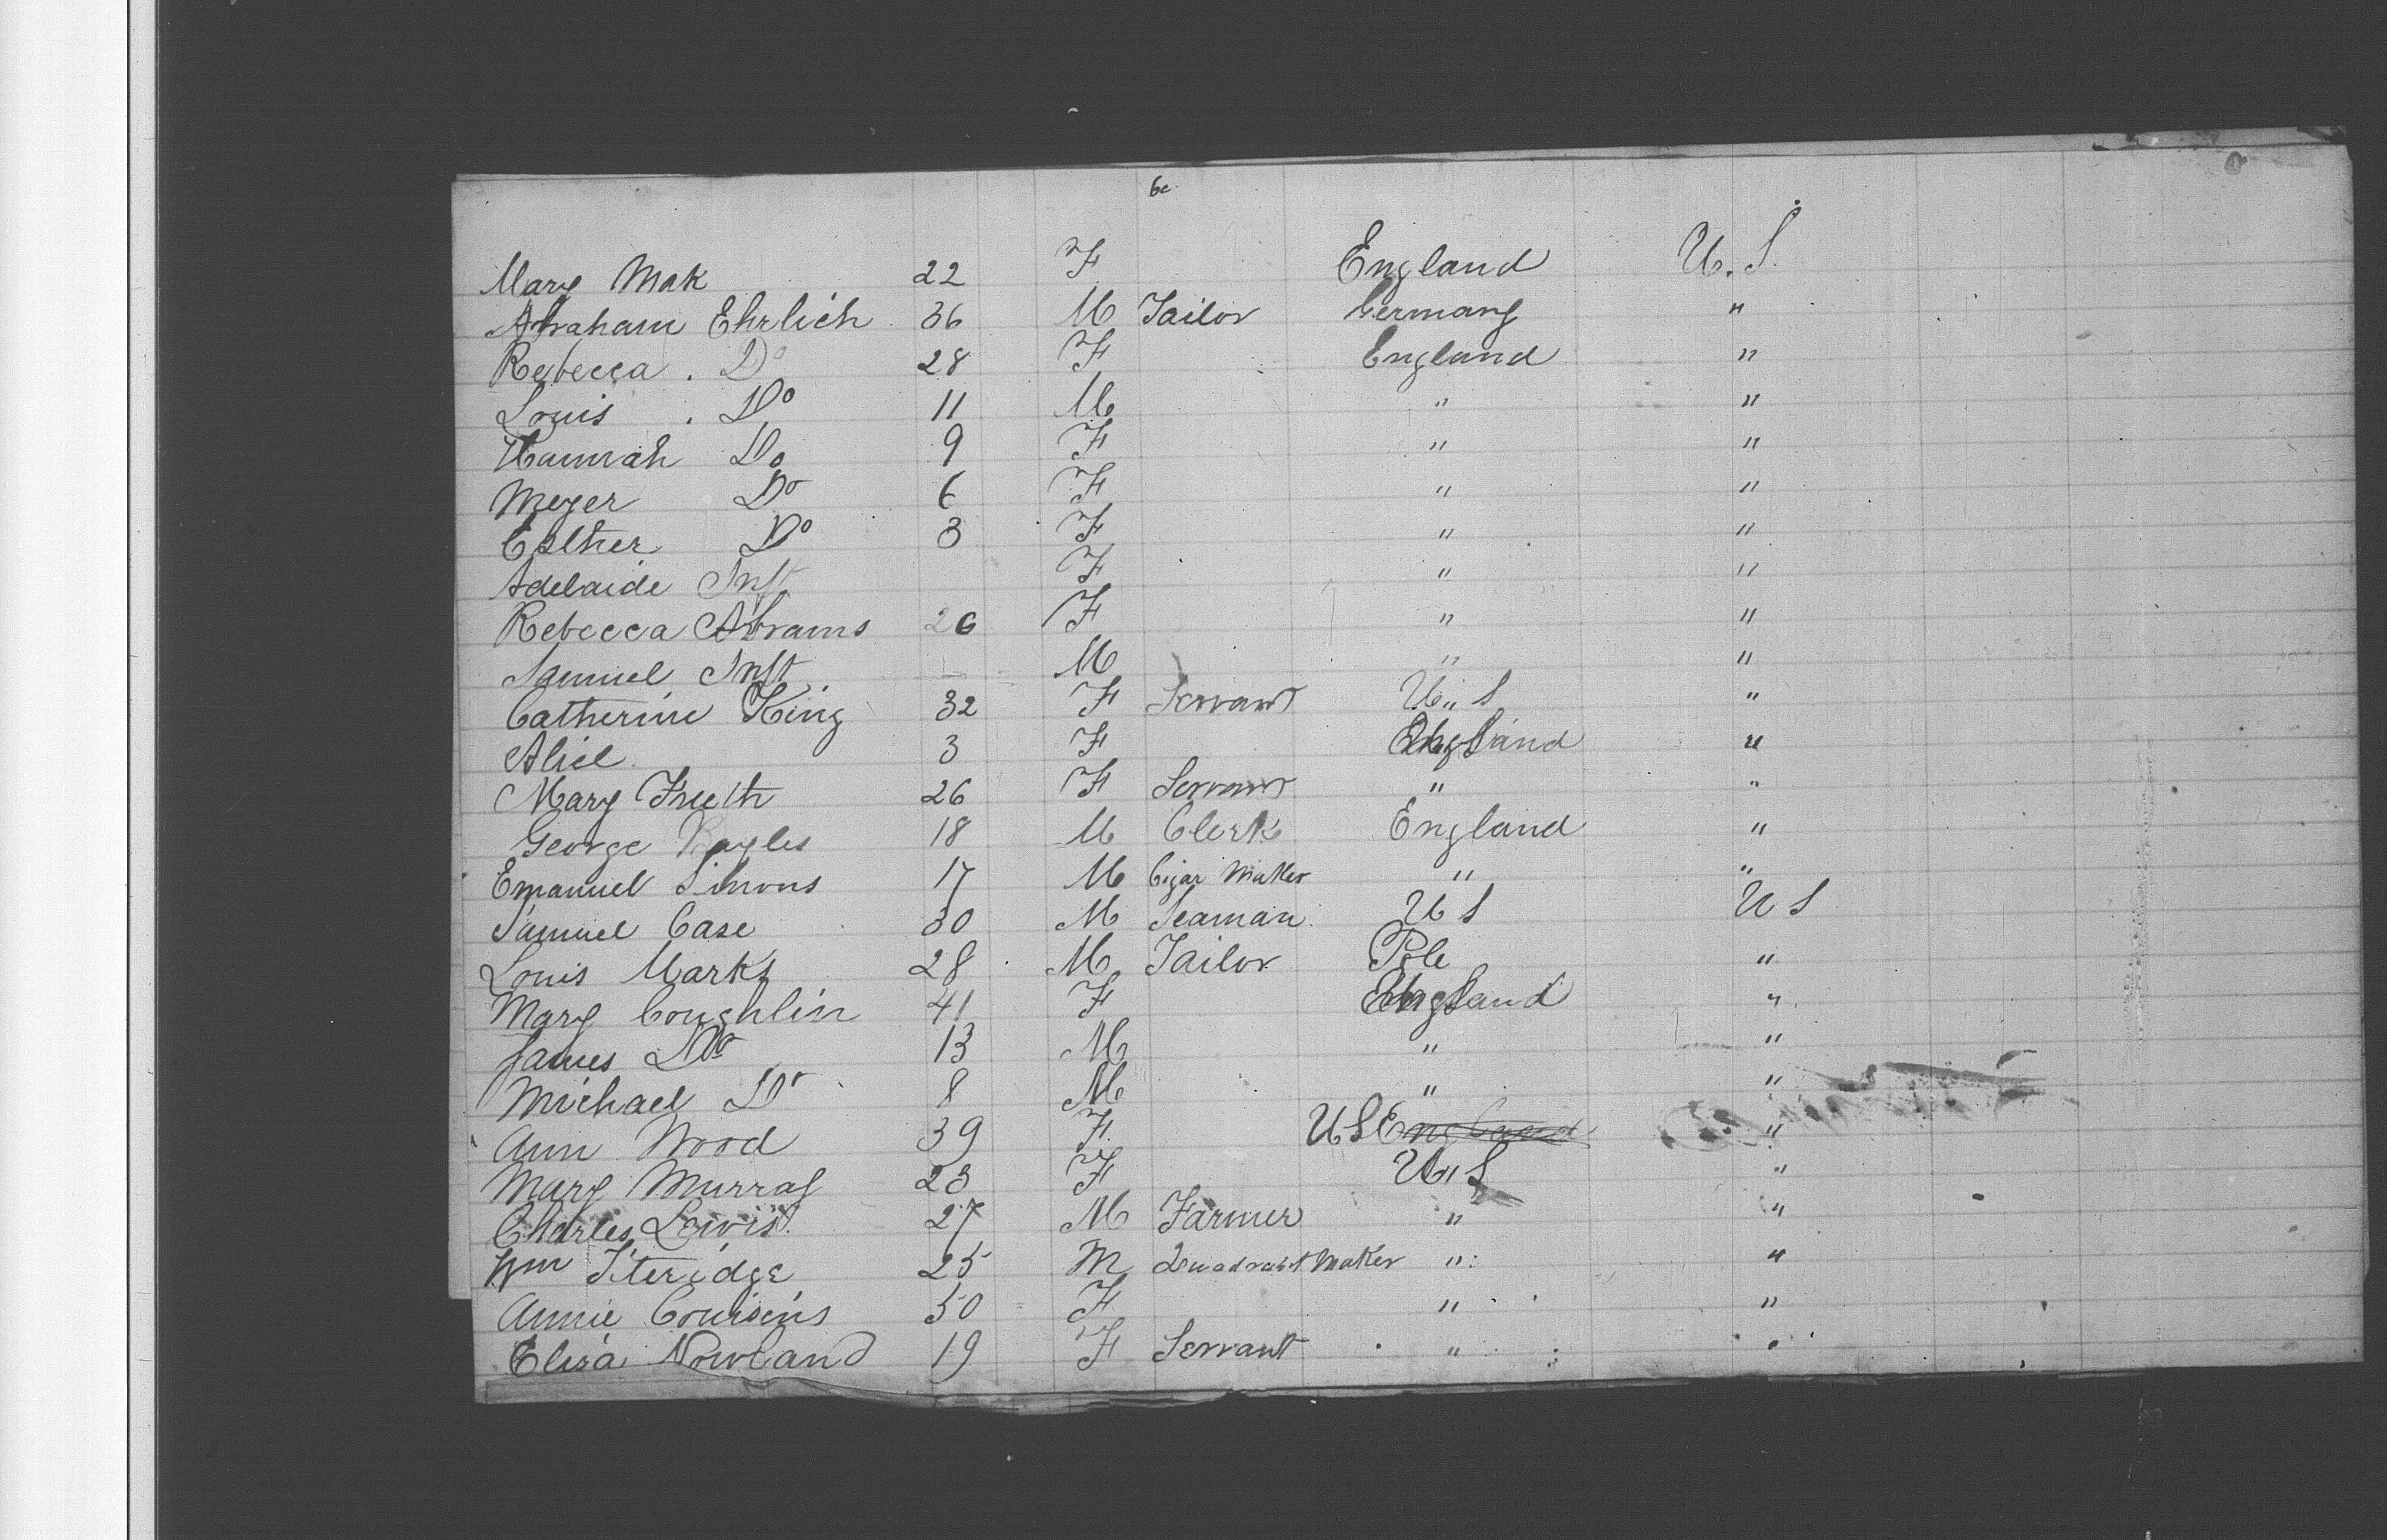 6c
Mary Mak 22 F England U.S.
Abraham Ehrlich 36 M Tailor Germany "
Rebecca . Do 28 F England "
Louis . Do 11 M " "
Hannah Do 9 F " "
Meyer Do 6 F " "
Esther Do 3 F " "
Adelaide Inft F " "
Rebecca Abrams 26 F " "
Samuel Inft M " "
Catherine King 32 F Servant U.. S "
Alice 3 F England "
Mary Frueth 26 F Servant " "
George Bayles 18 M Clerk England "
Emanuel Simons 17 M Cigar Maker " "
Samuel Case 30 M Seaman U S U S
Louis Marks 28 M Tailor Pole "
Mary Coughlin 41 F England "
James Do 13 M " "
Michael Do 8 M " "
Ann Wood 39 F U S England "
Mary Murray 23 F U.. S "
Charles Lewis 27 M Farmer " "
Wm Iteridge 25 M Quadrant Maker " "
Annie Couisens 50 F " "
Eliza Nowland 19 F Servant " "